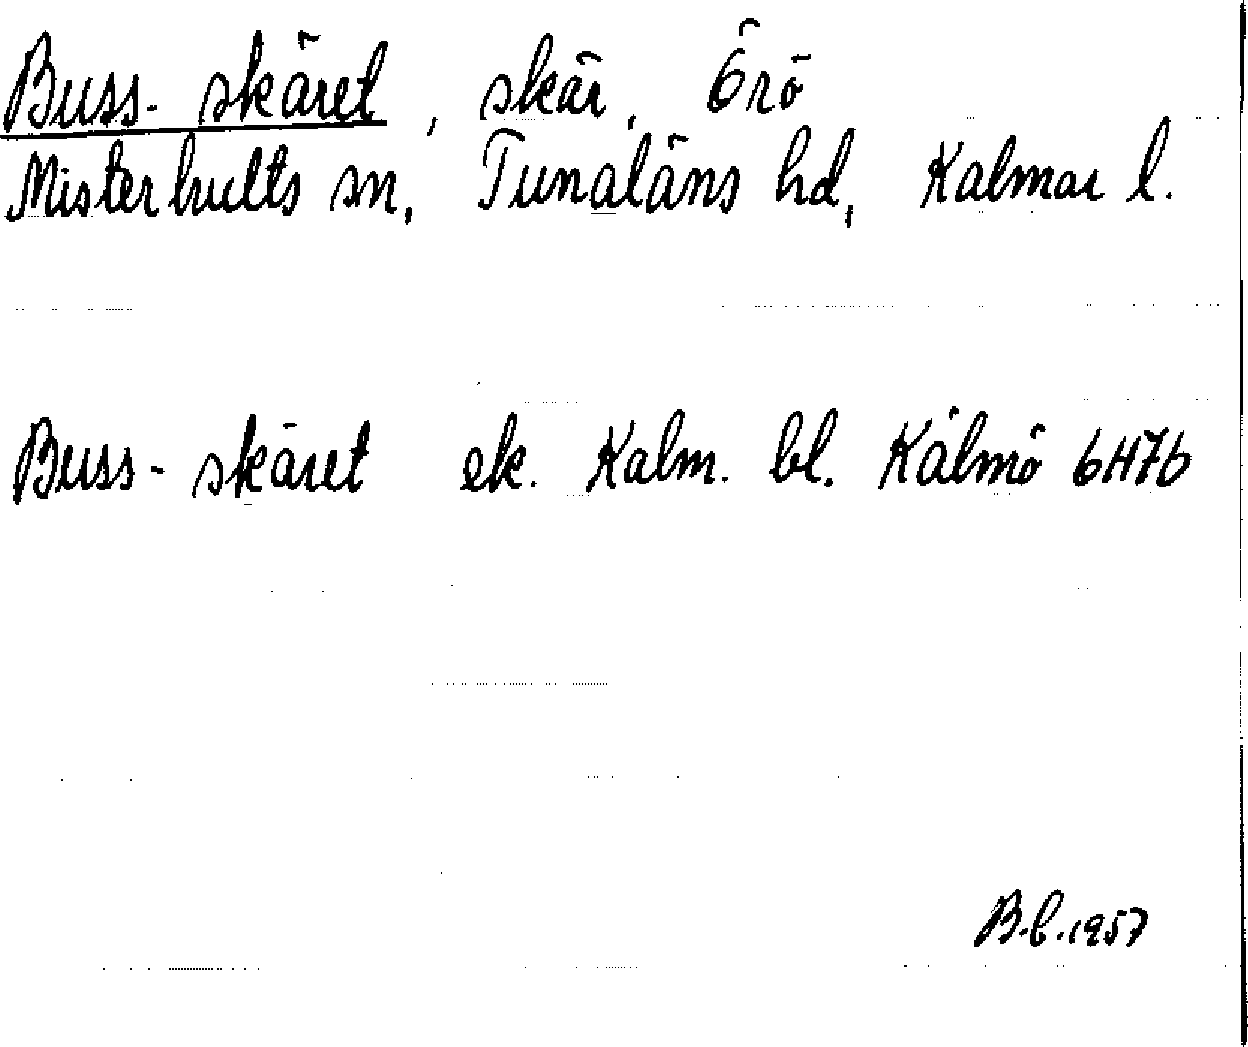 Buss-skäret, skär, Örö
Misterhults sn, Tunaläns hd, Kalmar l.
Buss-skäret ek. Kalm. bl. Kålmö 6H7b
B.b.1957